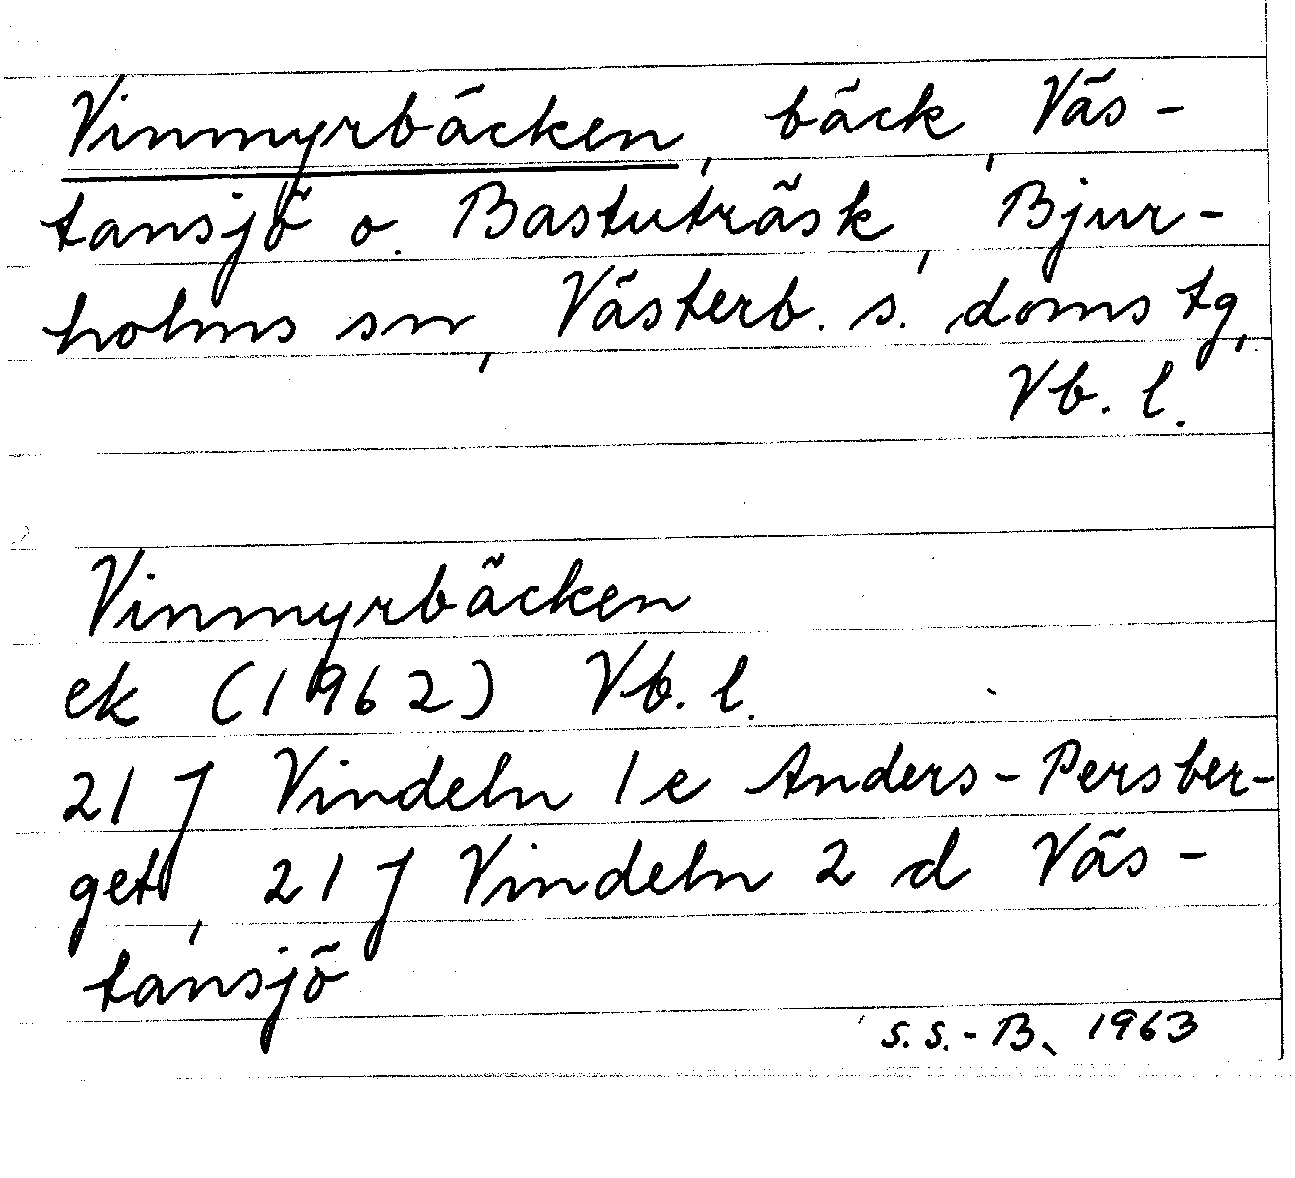 Vinmyrbäcken, bäck, Väs-
tansjö o. Bastuträsk, Bjur-
holms sn, Västerb. s. doms tg,
Vb. l.
Vinmyrbäcken
ek (1962) Vb. l.
21 J Vindeln 1 e Anders-Persber-
get, 21 J Vindeln 2 d Väs-
tansjö
S.S.-B. 1963